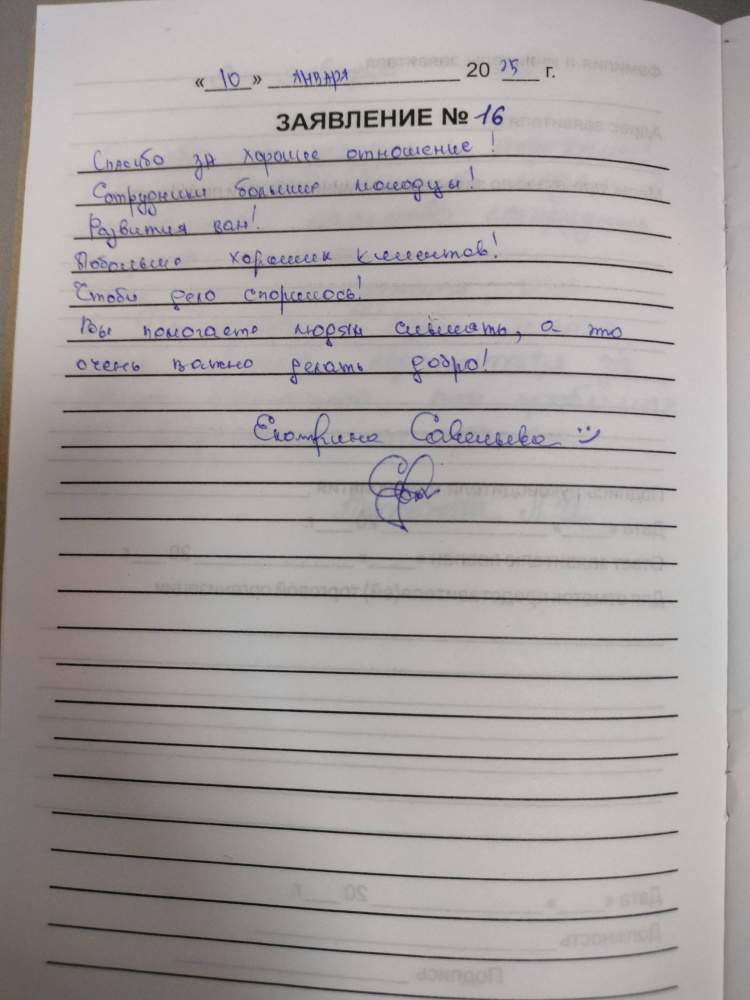 « 10 » ЯНВАРЯ 20 25 г.
ЗАЯВЛЕНИЕ № 16
Спасибо за хорошее отношение!
Сотрудники большие молодцы!
Развития вам!
Побольше хороших клиентов!
Чтобы дело спорилось!
Вы помогаете людям слышать, а это
очень важно делать добро!
Екатерина Савельева